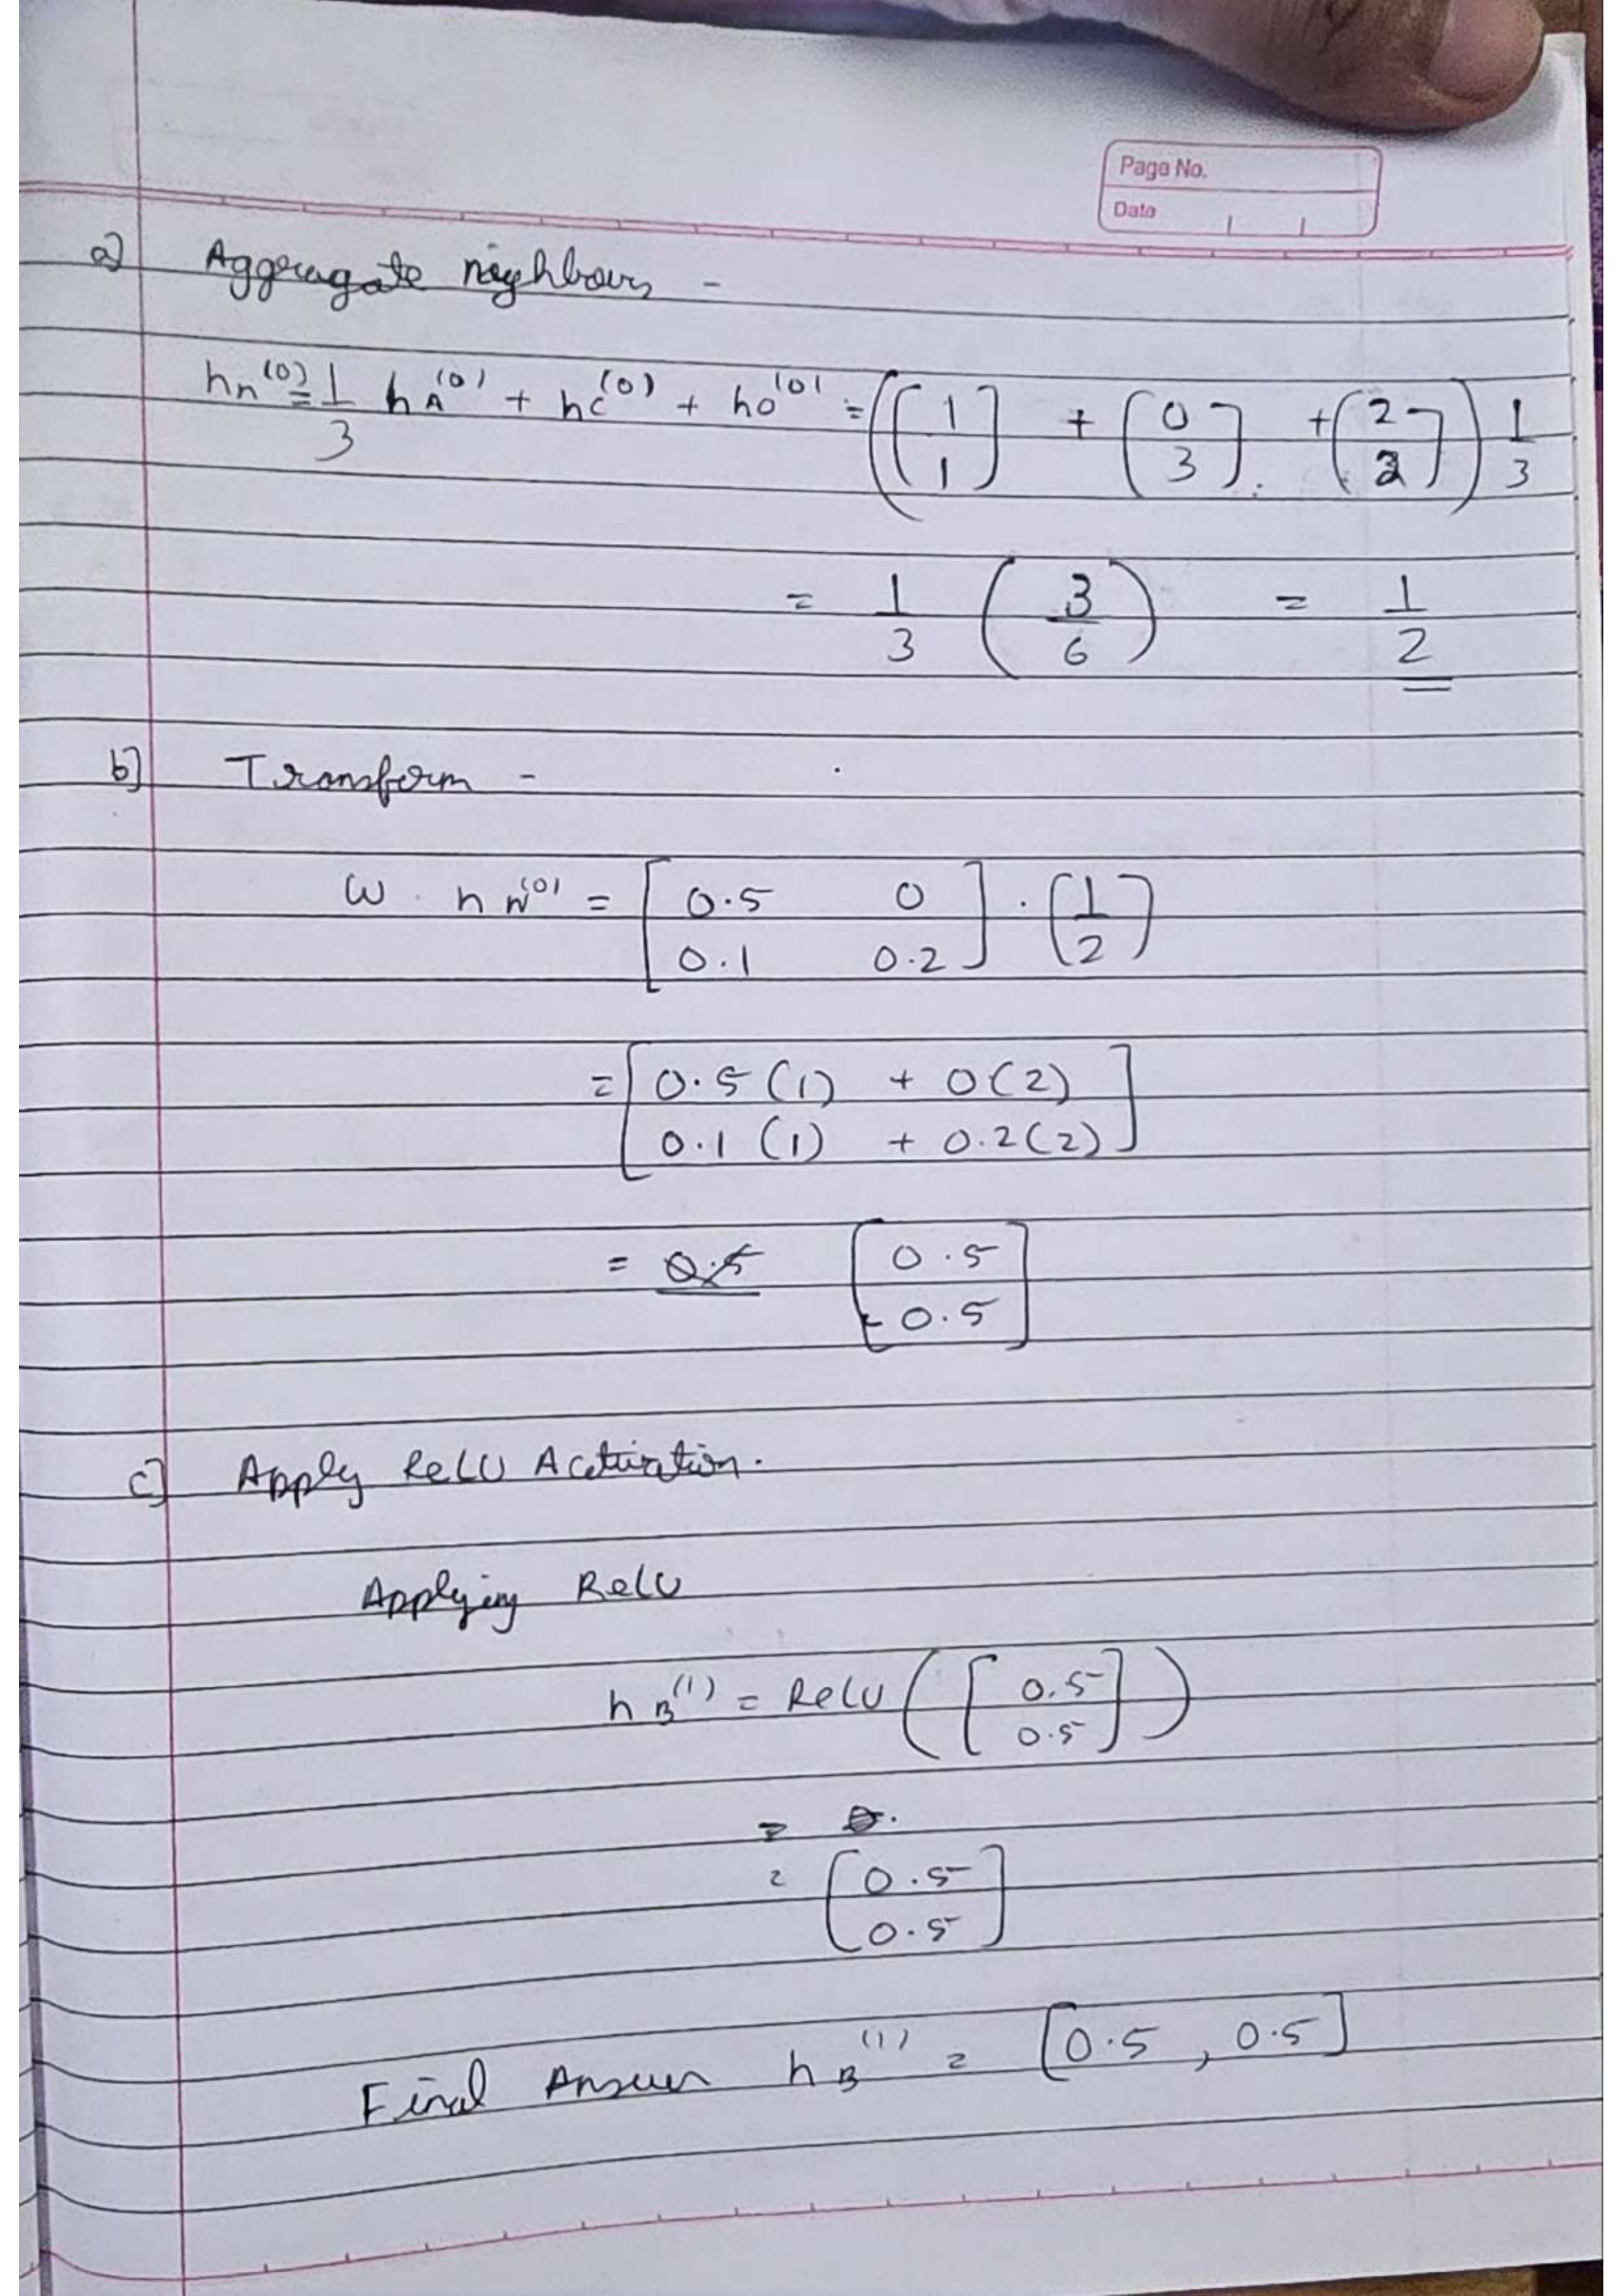 Page No.
Date
a] Aggregate neighbours -
hn^(0) = 1/3 hA^(0) + hC^(0) + hD^(0) = ([1 1] + [0 3] + [2 2]) 1/3
= 1/3 (3/6) = 1/2
b] Transform -
W . hN^(0) = [0.5 0 0.1 0.2] . [1 2]
= [0.5(1) + 0(2) 0.1(1) + 0.2(2)]
= 0.5 [0.5 0.5]
c] Apply ReLU Activation.
Applying ReLU
hB^(1) = ReLU([0.5 0.5])
= 0.
= [0.5 0.5]
Final Answer hB^(1) = [0.5, 0.5]